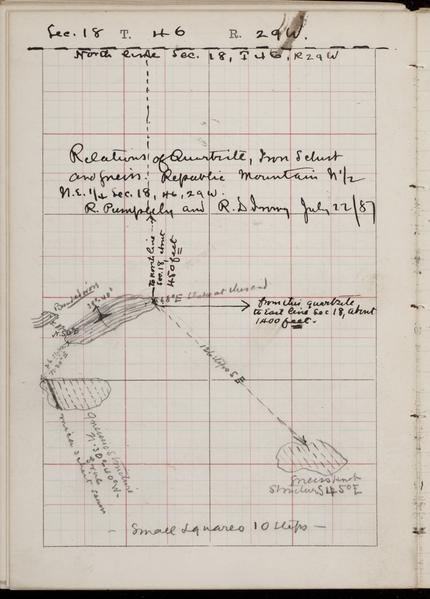 Sec. 18 T. 46 R. 29W.
North line Sec. 18, T 46, R29W
Relations of Quartzite, Iron Schist
and Gneiss. Republic Mountain N 1/2
N.E. 1/4 Sec. 18, 46, 29W.
R. Pumpelly and R. D Irving July 22/87
to north line
Sec. 18, about
450 feet
from this quartzite
to East line Sec 18, about
1400 feet.
Gneissic structure
N. 30-40°W.
mica schist
Gneiss
Structure S45°E
- Small squares 10 steps -